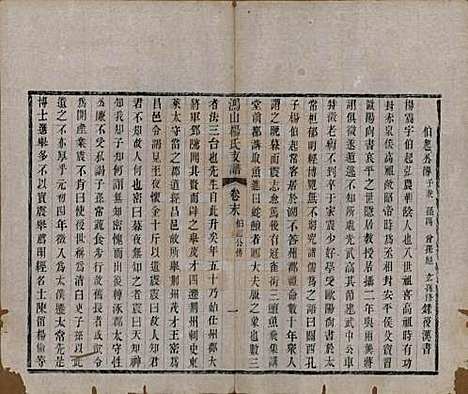 伯起公傳 子秉 孫賜 曾孫彪 玄孫修 錄後漢書
楊震字伯起弘農華陰人也八世祖喜高祖時有功
封赤泉侯高祖敞昭帝時為丞相封安平侯父寶習
歐陽尚書哀平之世隱居教授居攝二年與兩龔蔣
詡俱徵遂遁逃不知所處光武高其節建武中公車
特徵老病不到卒於家震少好學受歐陽尚書於太
常桓郁明經博覽無不窮究諸儒為之語曰關西孔
子楊伯起常客居於湖不答州郡禮命數十年眾人
謂之晚暮而震志愈篤後有冠雀銜三鱣魚飛集講
堂前都講取魚進曰蛇鱣者卿大夫服之象也數三
鴻山楊氏支譜 卷末 伯起公傳 一
者法三台也先生自此升矣年五十乃始仕州郡大
將軍鄧騭聞其賢而辟之舉茂才四遷荊州刺史東
萊太守當之郡道經昌邑故所舉荊州茂才王密為
昌邑令謁見至夜懷金十斤以遺震震曰故人知君
君不知故人何也密曰暮夜無知者震曰天知神知
我知子知何謂無知密愧而出後轉涿郡太守性公
廉不受私謁子孫常蔬食步行故舊長者或欲令為
開產業震不肯曰使後世稱為清白吏子孫以此
遺之不亦厚乎元初四年徵入為太僕遷太常先是
博士選舉多不以實震舉薦明經名士陳留楊倫等